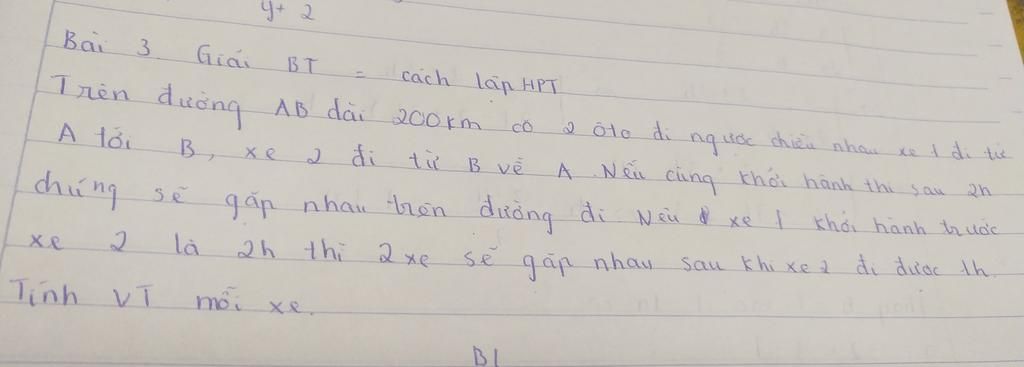 y+ 2
Bài 3 Giải BT = cách lập HPT
Trên đường AB dài 200km có 2 ôtô đi ngược chiều nhau xe 1 đi từ
A tới B, xe 2 đi từ B về A. Nếu cùng khởi hành thì sau 2h
chúng sẽ gặp nhau trên đường đi Nếu xe 1 khởi hành trước
xe 2 là 2h thì 2 xe sẽ gặp nhau sau khi xe 2 đi được 1h.
Tính VT mỗi xe.
Bl